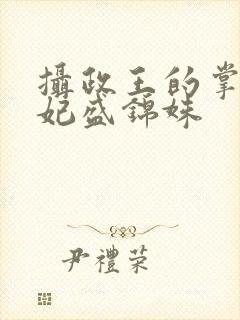 攝政王的掌
妃盛錦姝
尹禮榮